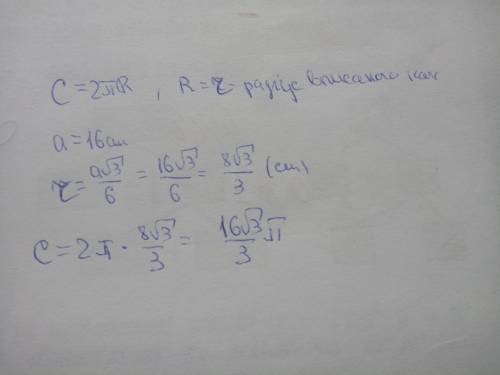 C = 2πR , R = r - радіус вписаного
a = 16см
r = a√3/6 = 16√3/6 = 8√3/3 (см)
C = 2π · 8√3/3 = 16√3/3 π